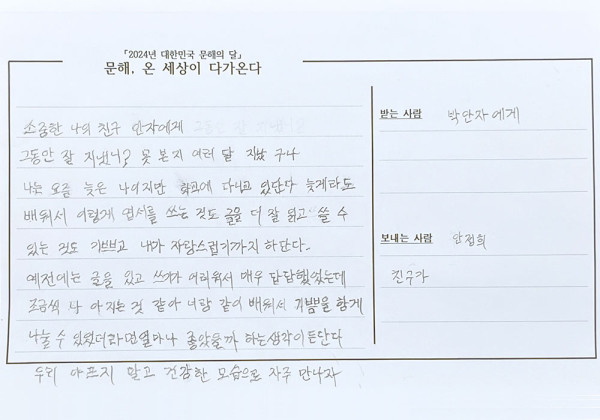 「2024년 대한민국 문해의 달」
문해, 온 세상이 다가온다
소중한 나의 친구 안자에게
그동안 잘 지냈니? 못 본지 여러 달 지났구나
나는 요즘 늦은 나이지만 학교에 다니고 있단다 늦게라도
배워서 이렇게 엽서를 쓰는것도 글을 더 잘 읽고 쓸 수
있는 것도 기쁘고 내가 자랑스럽기까지 하단다.
예전에는 글을 읽고 쓰기가 어려워서 매우 답답했었는데
조금씩 나아지는것 같아 너랑 같이 배워서 기쁨을 함께
나눌 수 있었더라면 얼마나 좋았을까 하는생각이든단다
우리 아프지 말고 건강한 모습으로 자주 만나자
받는 사람 박안자에게
보내는 사람 안점희
친구가